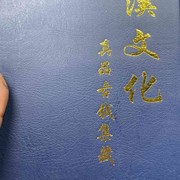 漢文化
真品古钱集藏